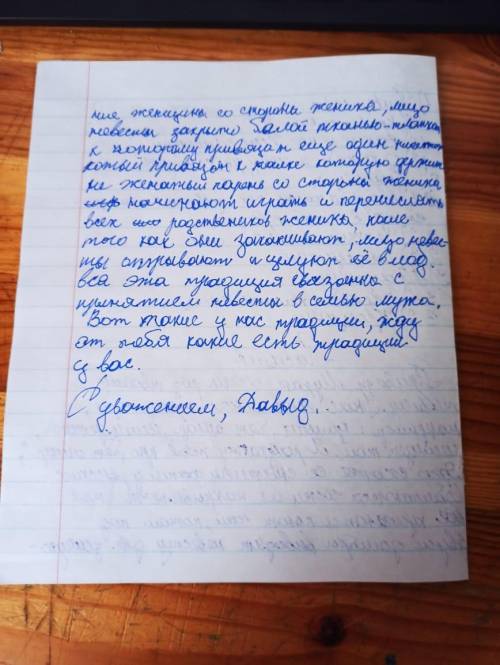 ние женщины со стороны жениха, лицо
невесты закрыто белой тканью-платком
к которому привязан еще один платок
который привязан к палке которую держит
не женатый парень со стороны жениха
начинают играть и перечислять
всех родствеников жениха, после
того как они заканчивают, лицо невес-
ты открывают и целуют её в лоб.
вся эта традиция связанна с
принятием невесты в семью мужа.
Вот такие у нас традиции, жду
от тебя какие есть традиции
у вас.
С уважением, Давыд.